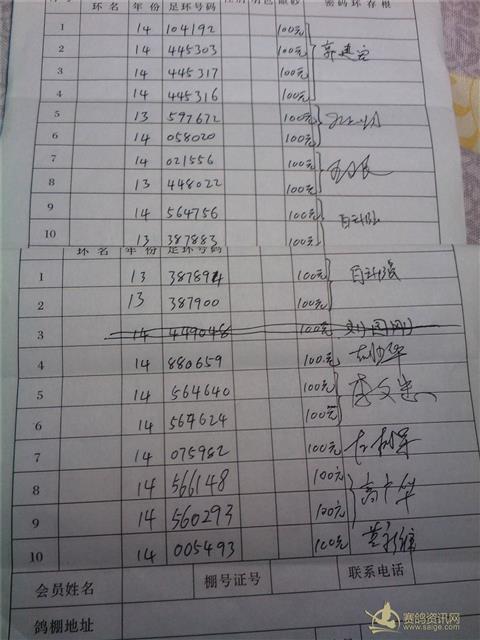 环名 年份 足环号码 密码环存根
1 14 104192 100元
2 14 445303 100元 郭建
3 14 445317 100元
4 14 445316 100元
5 13 597672 100元
6 14 058020 100元
7 14 021556 100元
8 13 448022 100元
9 14 564756 100元
10 13 387883 100元
环名 年份 足环号码
1 13 387894 100元
2 13 387900 100元
3 14 449048 100元 刘国刚
4 14 880659 100元
5 14 564640 100元 李文忠
6 14 564624 100元
7 14 075982 100元
8 14 566148 100元 高
9 14 560293 100元
10 14 005493 100元
会员姓名 棚号证号 联系电话
鸽棚地址
赛鸽资讯网
www.saige.com